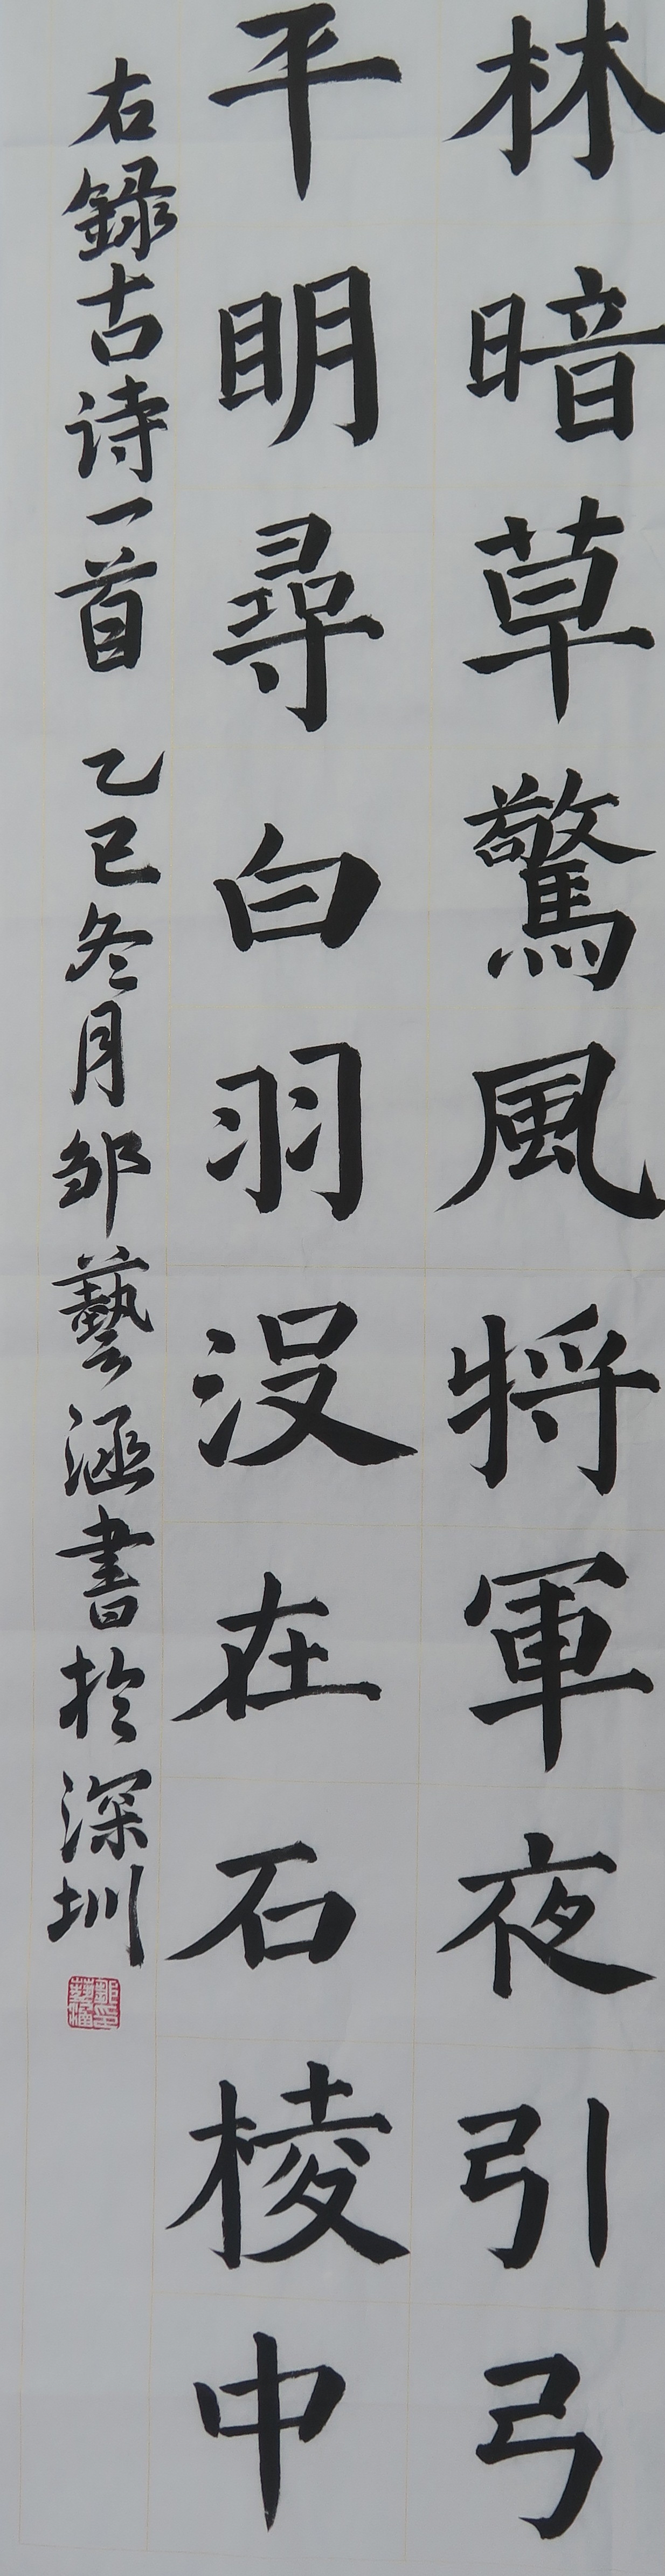 林暗草驚風将軍夜引弓
平明尋白羽没在石棱中
右録古诗一首 乙巳冬月邹藝涵書於深圳